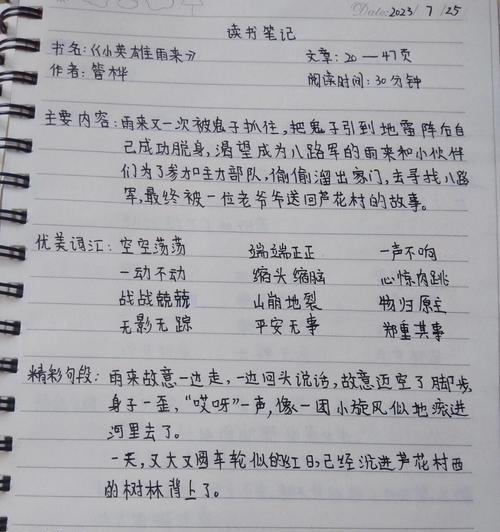 Date: 2023 / 7 / 25
读书笔记
书名:《小英雄雨来》 文章:20—47页
作者:管桦 阅读时间:30分钟
主要内容:雨来又一次被鬼子抓住,把鬼子引到地雷阵后自
己成功脱身,渴望成为八路军的雨来和小伙伴
们为了参加主力部队,偷偷溜出家门,去寻找八路
军,最终被一位老爷爷送回芦花村的故事。
优美词汇:空空荡荡 端端正正 一声不响
一动不动 缩头缩脑 心惊肉跳
战战兢兢 山崩地裂 物归原主
无影无踪 平安无事 郑重其事
精彩句段:雨来故意一边走,一边回头说话,故意迈空了脚步,
身子一歪,“哎呀”一声,像一团小旋风似地滚进
河里去了。
一天,又大又圆车轮似的红日,已经沉进芦花村西
的树林背上了。